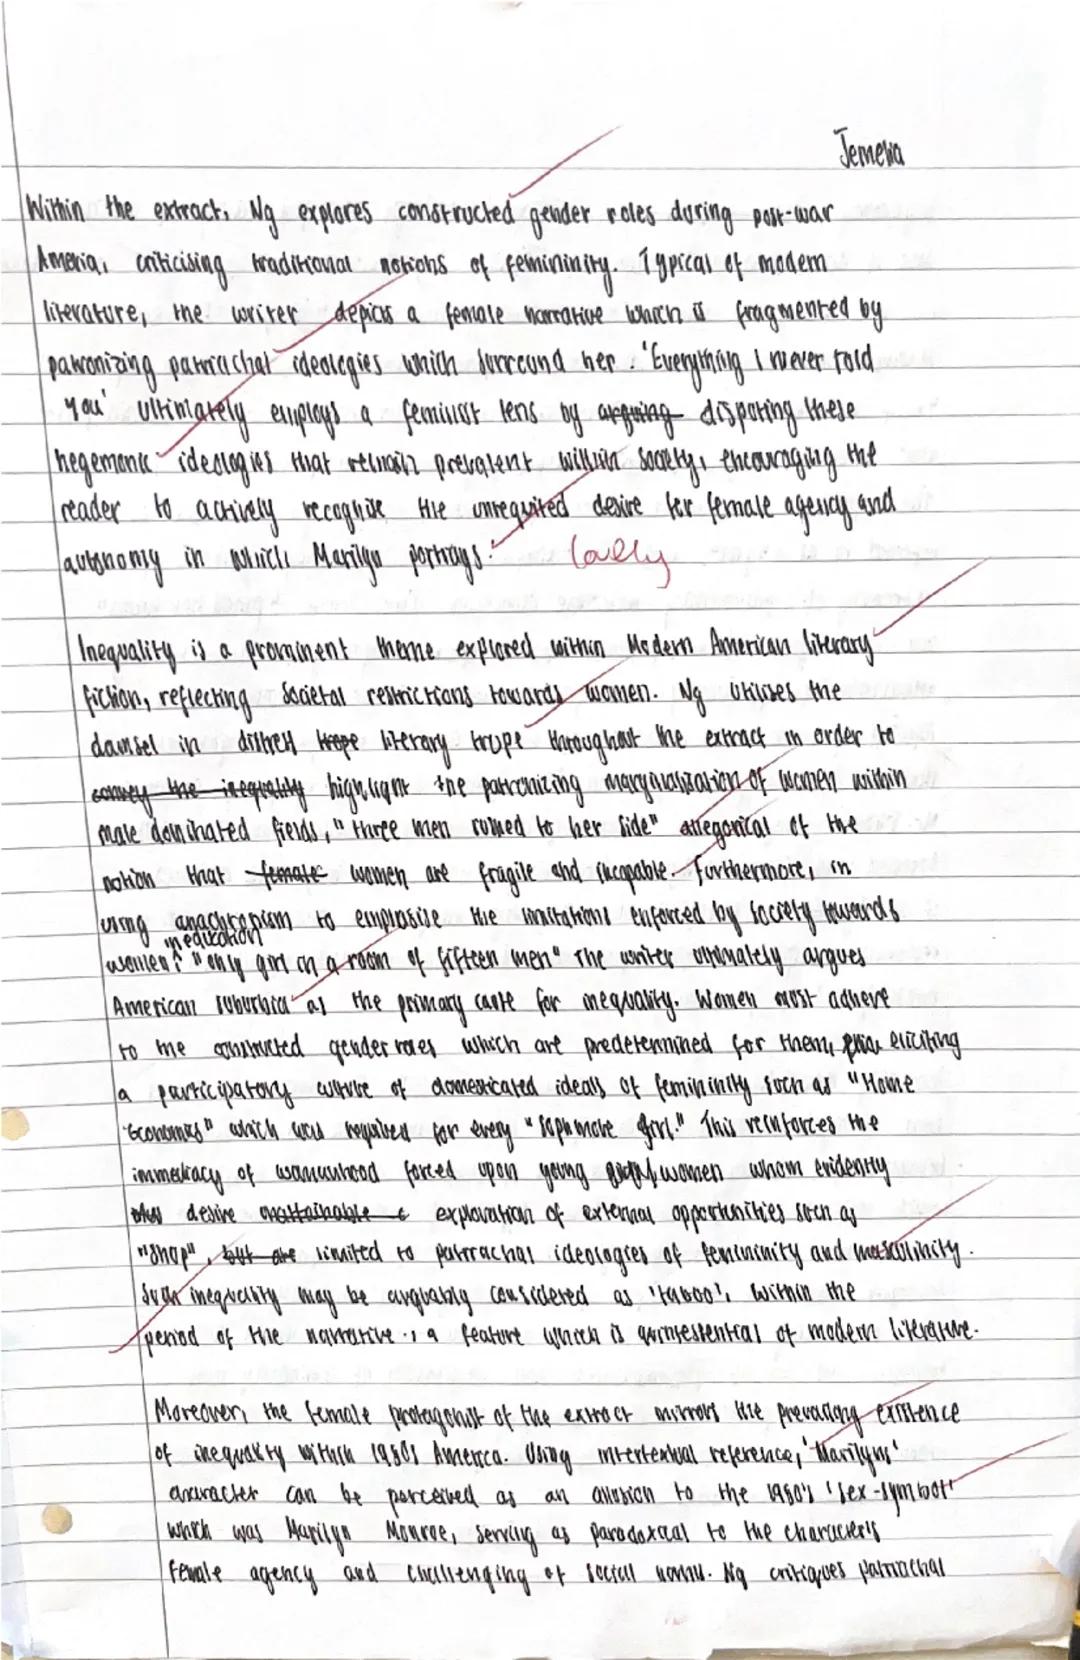 Jemelia
Within the extract, Ng explores constructed gender roles during post-war
Ameria, criticising traditional notions of femininity. Typical of modern
literature, the writer depicts a female narrative which is fragmented by
patronizing patriachal ideologies which surround her. 'Everything I never told
you' ultimately employs a feminist lens by arguing disputing these
hegemonic ideologies that remain prevalent within society, encouraging the
reader to actively recognise the unrequited desire for female agency and
autonomy in which Marilyn portrays.
lovely
Inequality is a prominent theme explored within Modern American literary
fiction, reflecting societal restrictions towards women. Ng utilises the
damsel in distress trope literary trope throughout the extract in order to
convey the inequality highlight the patronizing marginalisation of women within
male dominated fields, "three men rushed to her side" allegorical of the
notion that female women are fragile and incapable. Furthermore, in
using anachronism to emphasise the limitations enforced by society towards
in education
women: "only girl in a room of fifteen men" the writer ultimately argues
American suburbia as the primary cause for inequality. Women must adhere
to the constructed gender roles which are predetermined for them, eliciting
a participatory culture of domesticated ideals of femininity such as "Home
Economics" which was required for every "sophmore girl." This reinforces the
immediacy of womanhood forced upon young women whom evidently
desire unattainable exploration of external opportunities such as
"shop", but are limited to patriachal ideologies of femininity and masculinity.
Such inequality may be arguably considered as 'taboo', within the
period of the narrative, a feature which is quintessential of modern literature.
Moreover, the female protagonist of the extract mirrors the prevailing existence
of inequality within 1950s America. Using intertextual reference, 'Marilyns'
character can be perceived as an allusion to the 1950's 'sex-symbol'
which was Marilyn Monroe, serving as paradoxical to the character's
female agency and challenging of social norms. Ng critiques patriachal